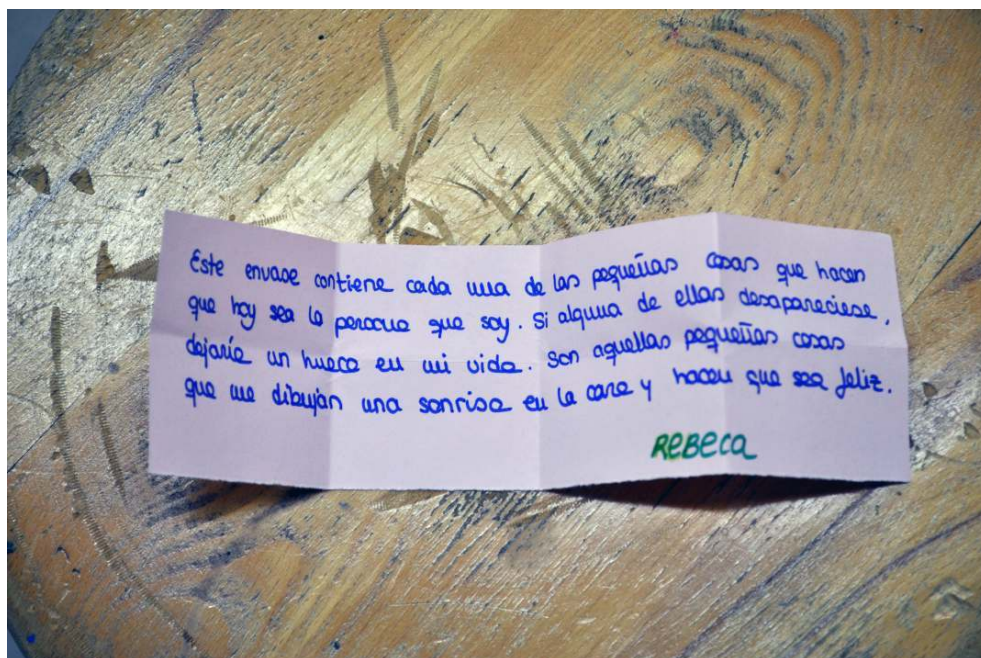 Este envase contiene cada una de las pequeñas cosas que hacen
que hoy sea la persona que soy. Si alguna de ellas desapareciese,
dejaría un hueco en mi vida. Son aquellas pequeñas cosas
que me dibujan una sonrisa en la cara y hacen que sea feliz.
REBECA